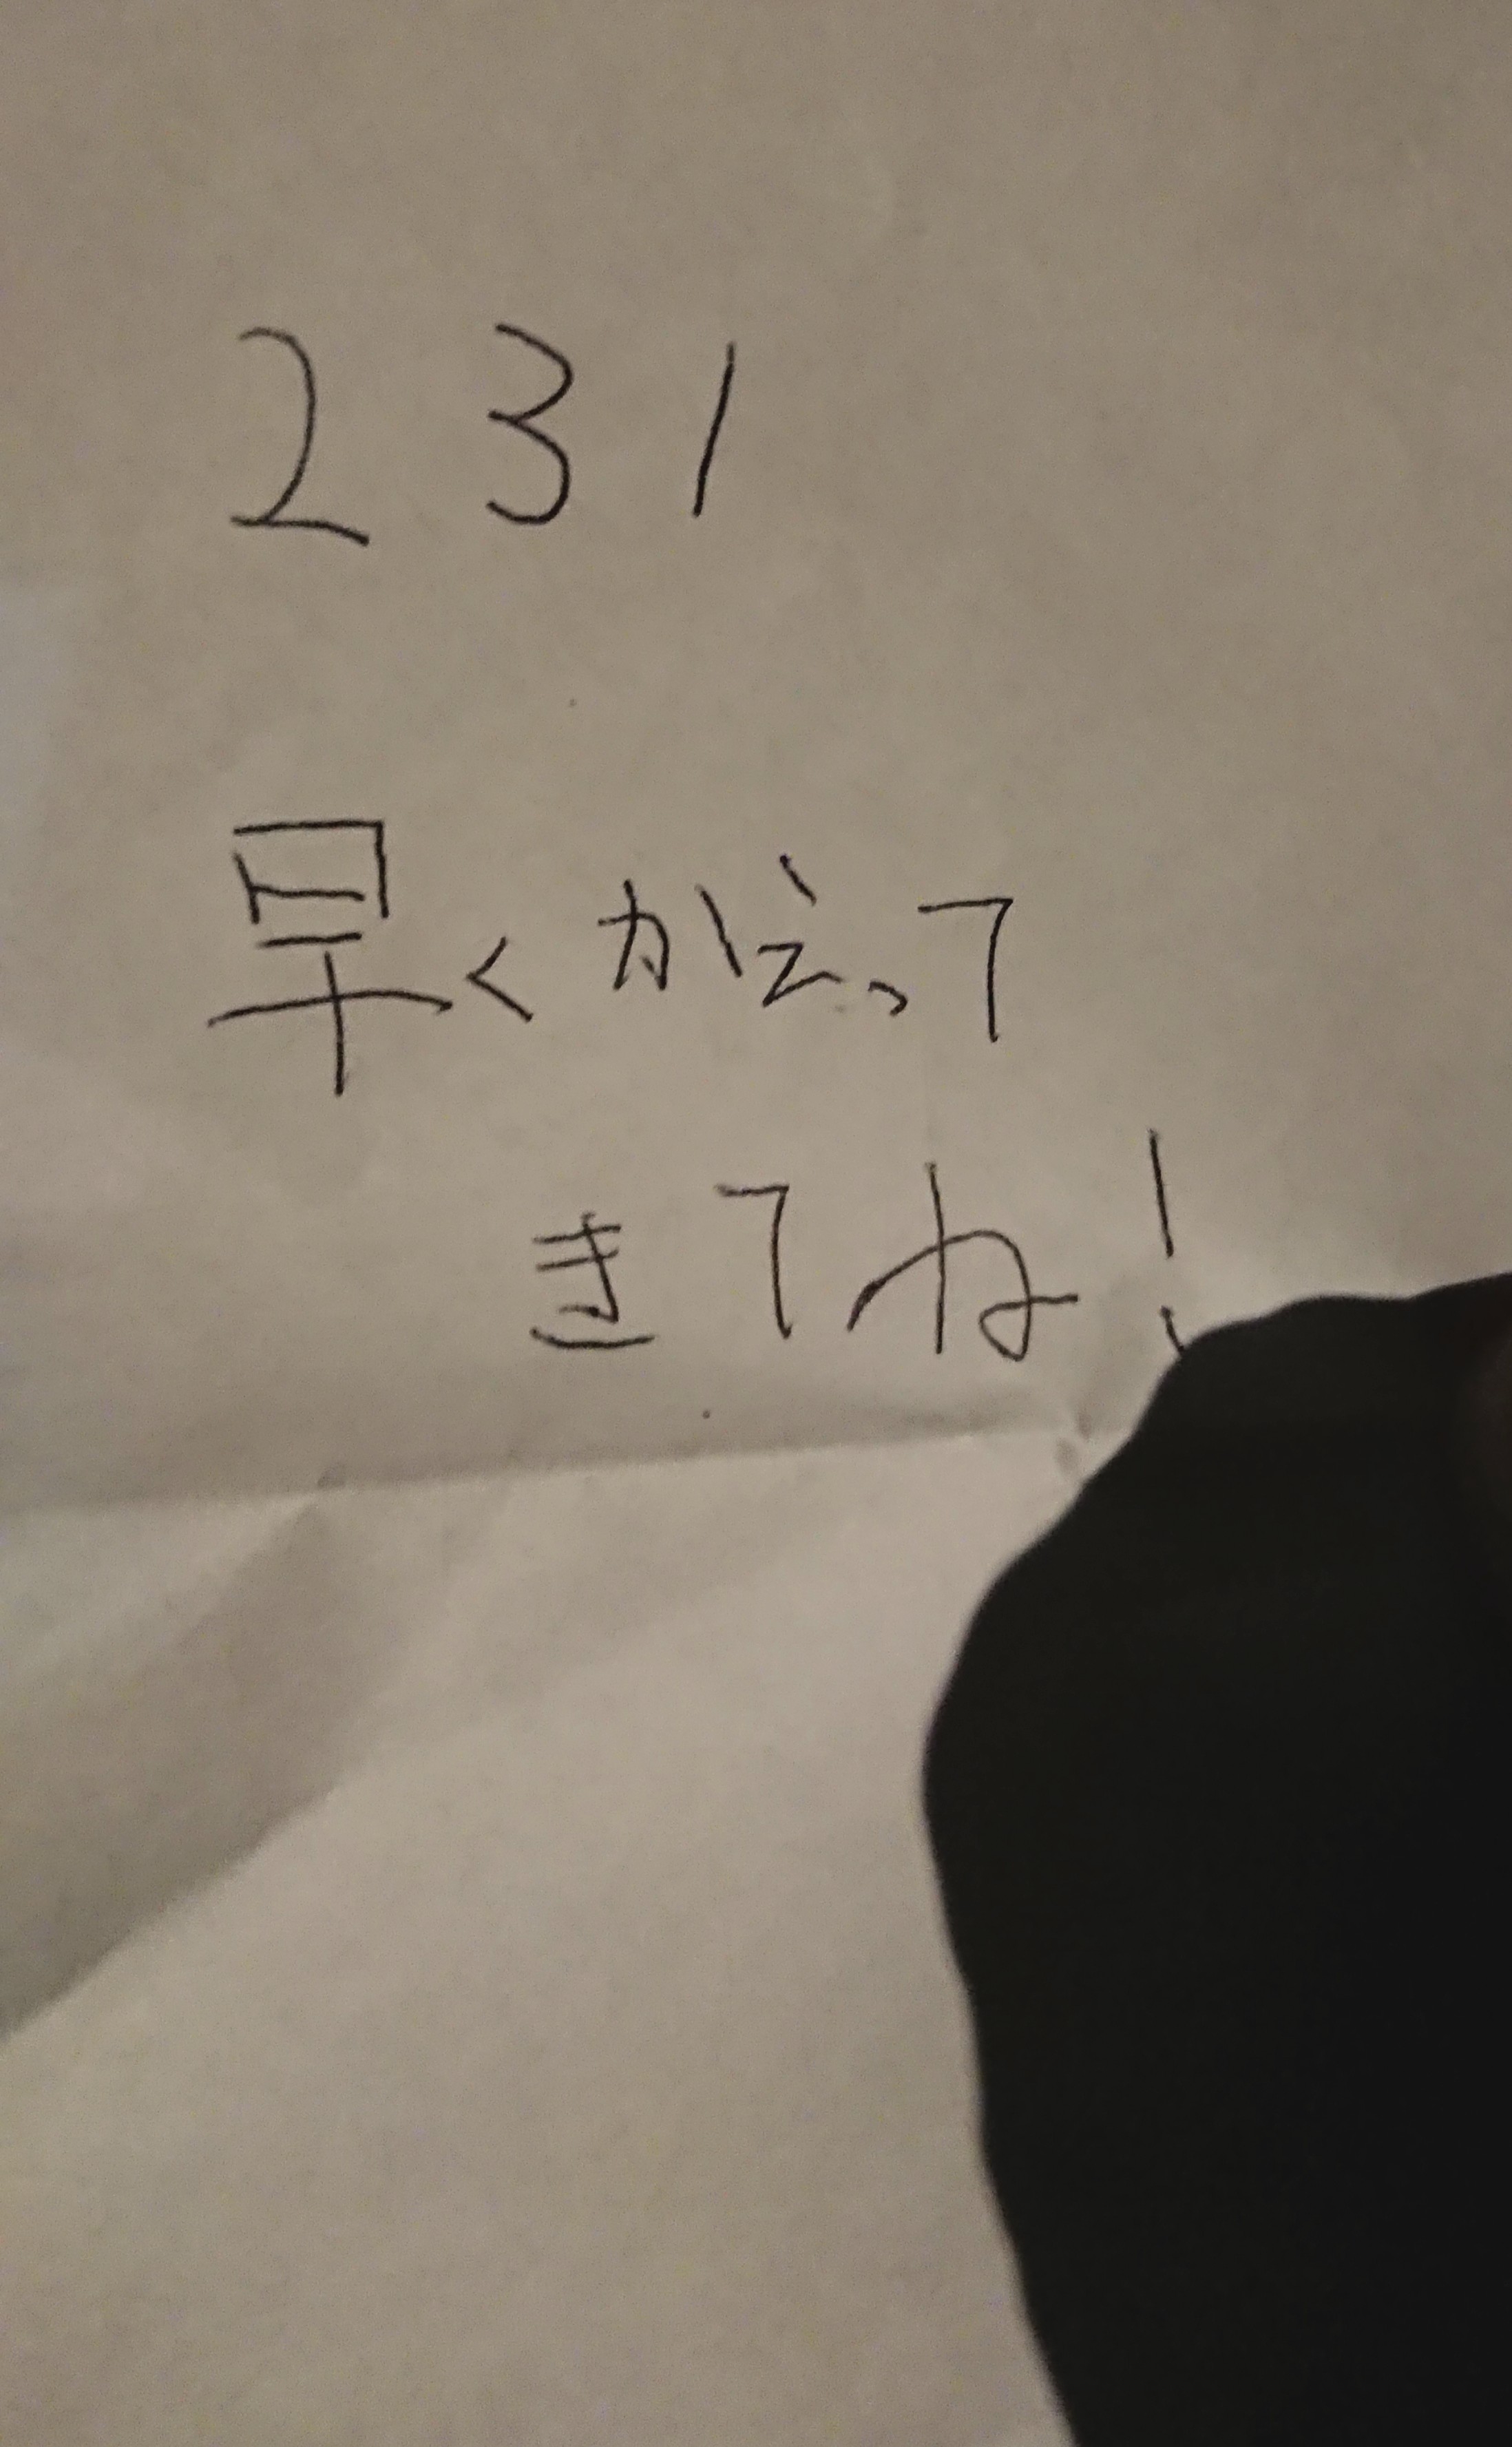 231
早くかえって
きてね!